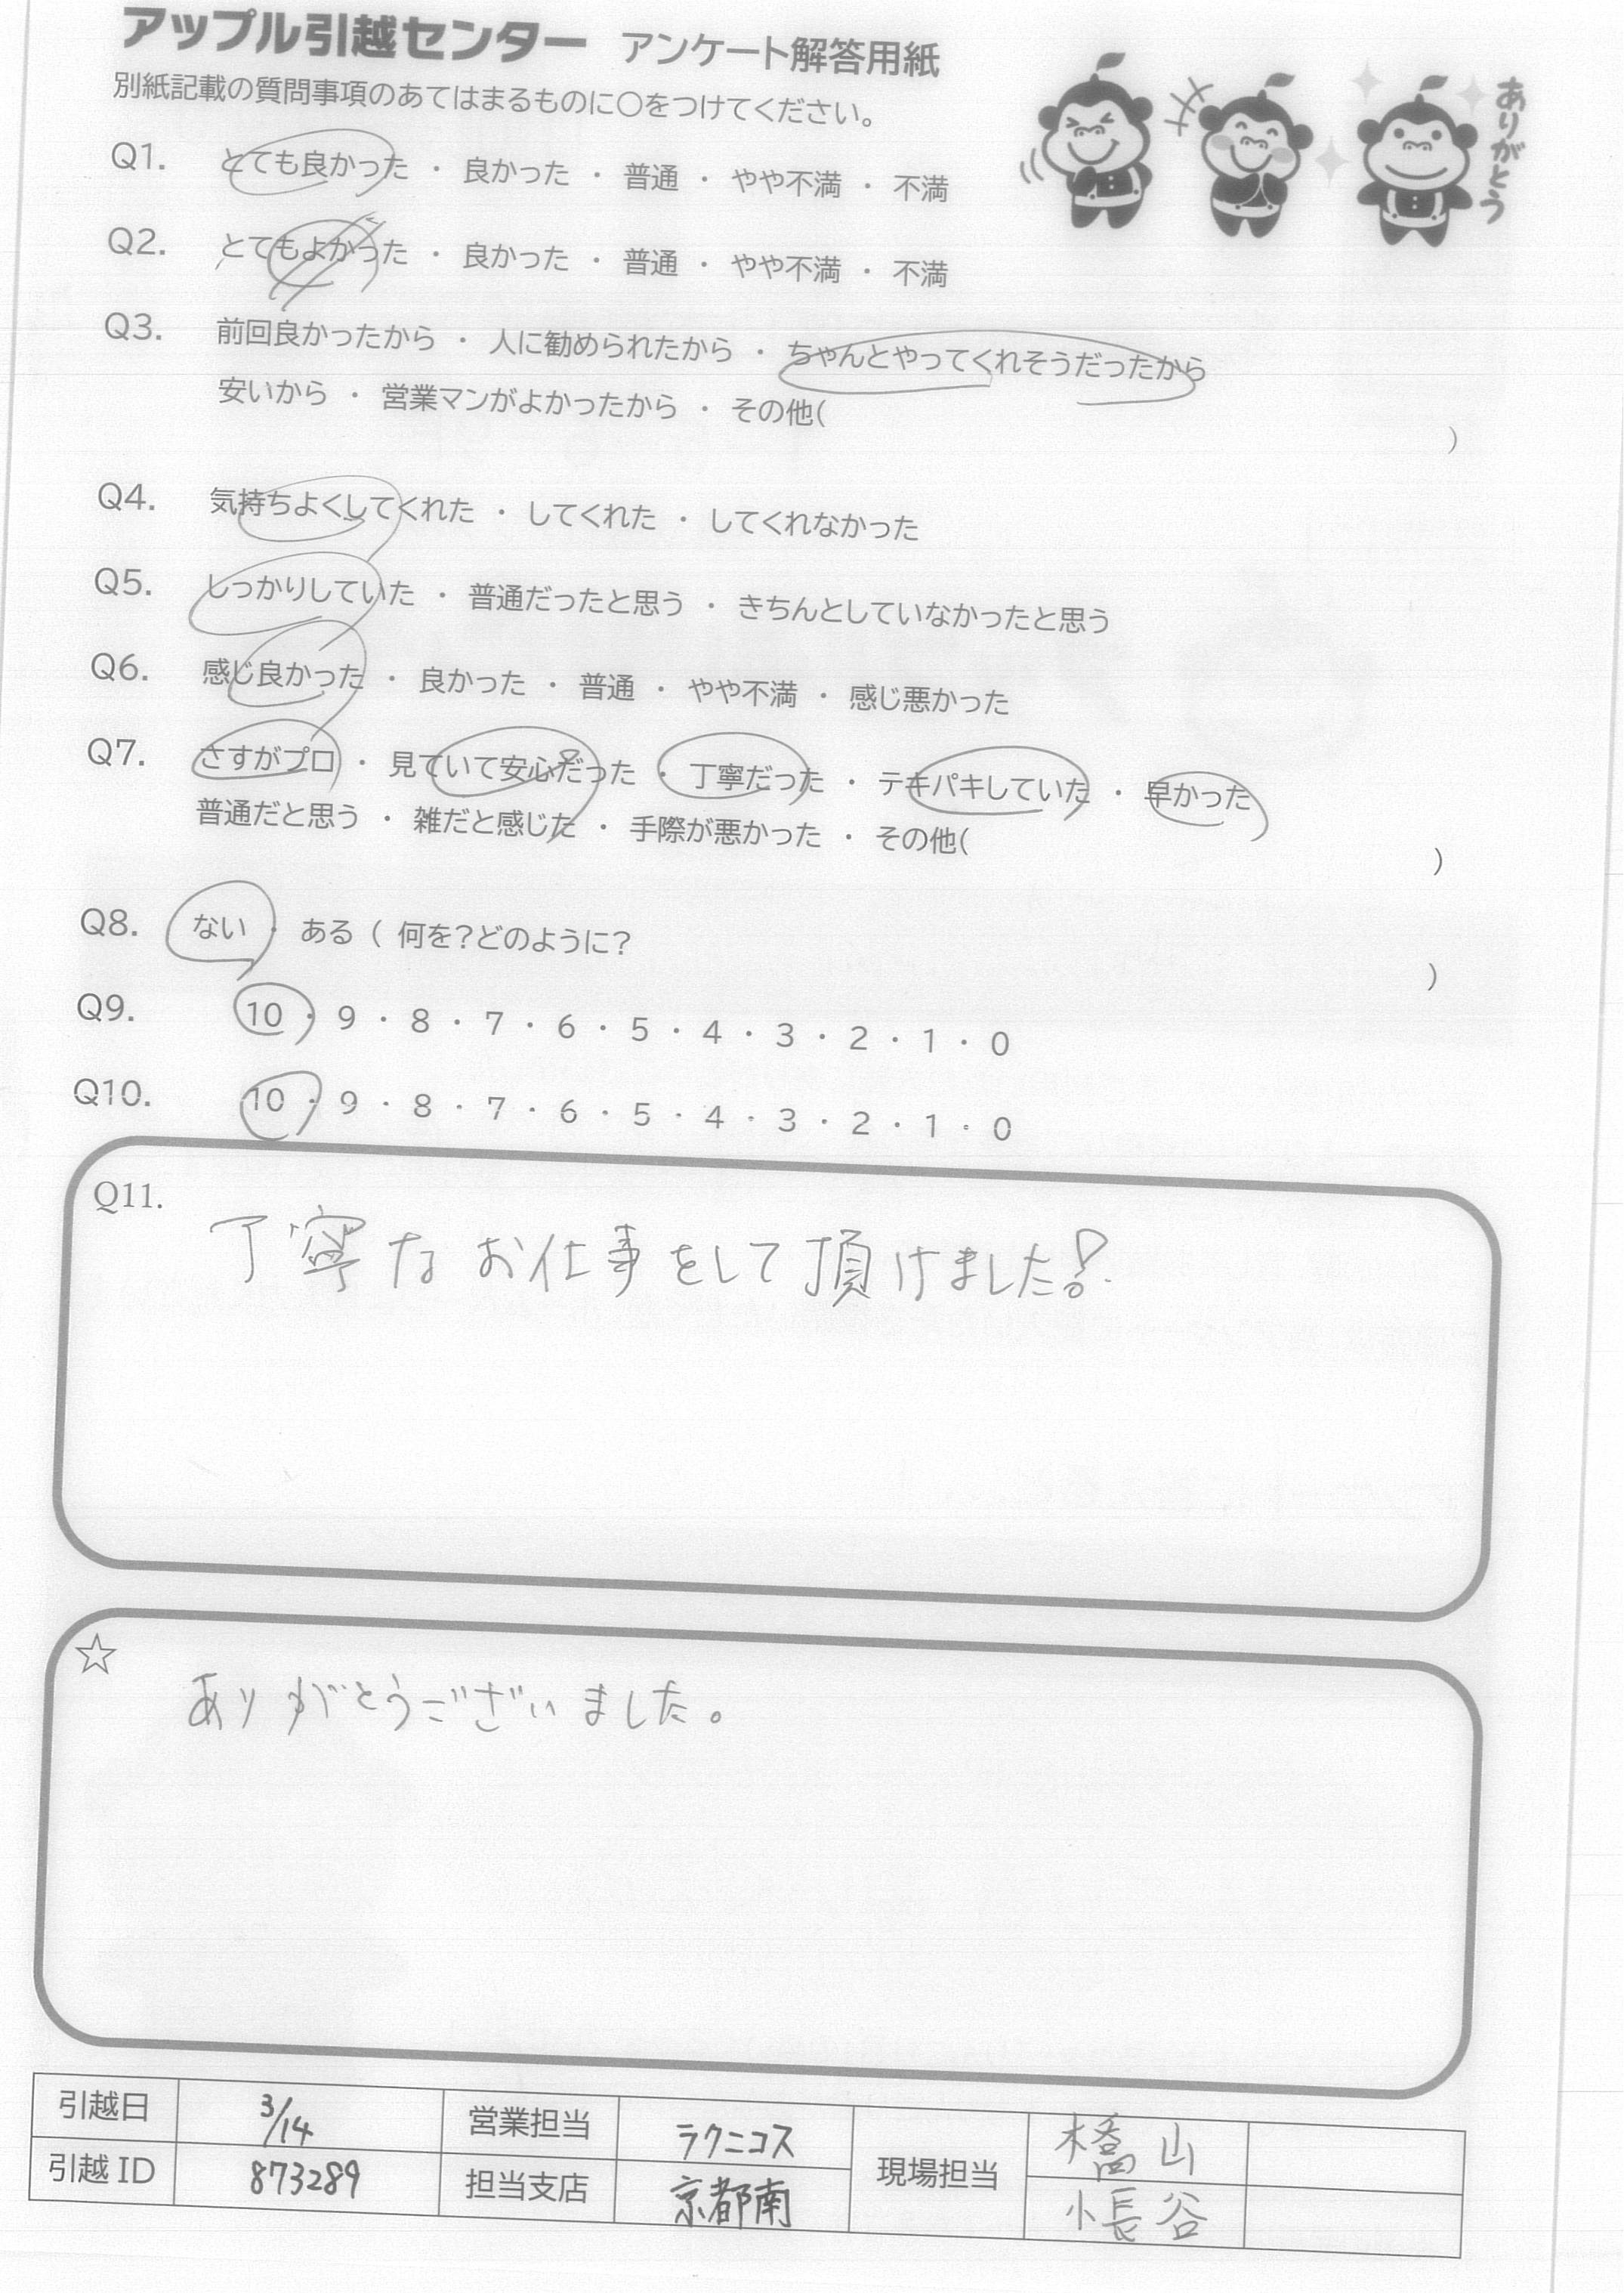 アップル引越センター アンケート解答用紙
別紙記載の質問事項のあてはまるものに○をつけてください。
ありがとう
Q1. とても良かった ・ 良かった ・ 普通 ・ やや不満 ・ 不満
Q2. とてもよかった ・ 良かった ・ 普通 ・ やや不満 ・ 不満
Q3. 前回良かったから ・ 人に勧められたから ・ ちゃんとやってくれそうだったから
安いから ・ 営業マンがよかったから ・ その他( )
Q4. 気持ちよくしてくれた ・ してくれた ・ してくれなかった
Q5. しっかりしていた ・ 普通だったと思う ・ きちんとしていなかったと思う
Q6. 感じ良かった ・ 良かった ・ 普通 ・ やや不満 ・ 感じ悪かった
Q7. さすがプロ ・ 見ていて安心だった ・ 丁寧だった ・ テキパキしていた ・ 早かった
普通だと思う ・ 雑だと感じた ・ 手際が悪かった ・ その他( )
Q8. ない ・ ある ( 何を?どのように? )
Q9. 10 ・ 9 ・ 8 ・ 7 ・ 6 ・ 5 ・ 4 ・ 3 ・ 2 ・ 1 ・ 0
Q10. 10 ・ 9 ・ 8 ・ 7 ・ 6 ・ 5 ・ 4 ・ 3 ・ 2 ・ 1 ・ 0
Q11.
丁寧なお仕事をして頂けました!
☆
ありがとうございました。
引越日 3/14 営業担当 ラクニコス 現場担当 橋山
引越ID 873289 担当支店 京都南 小長谷